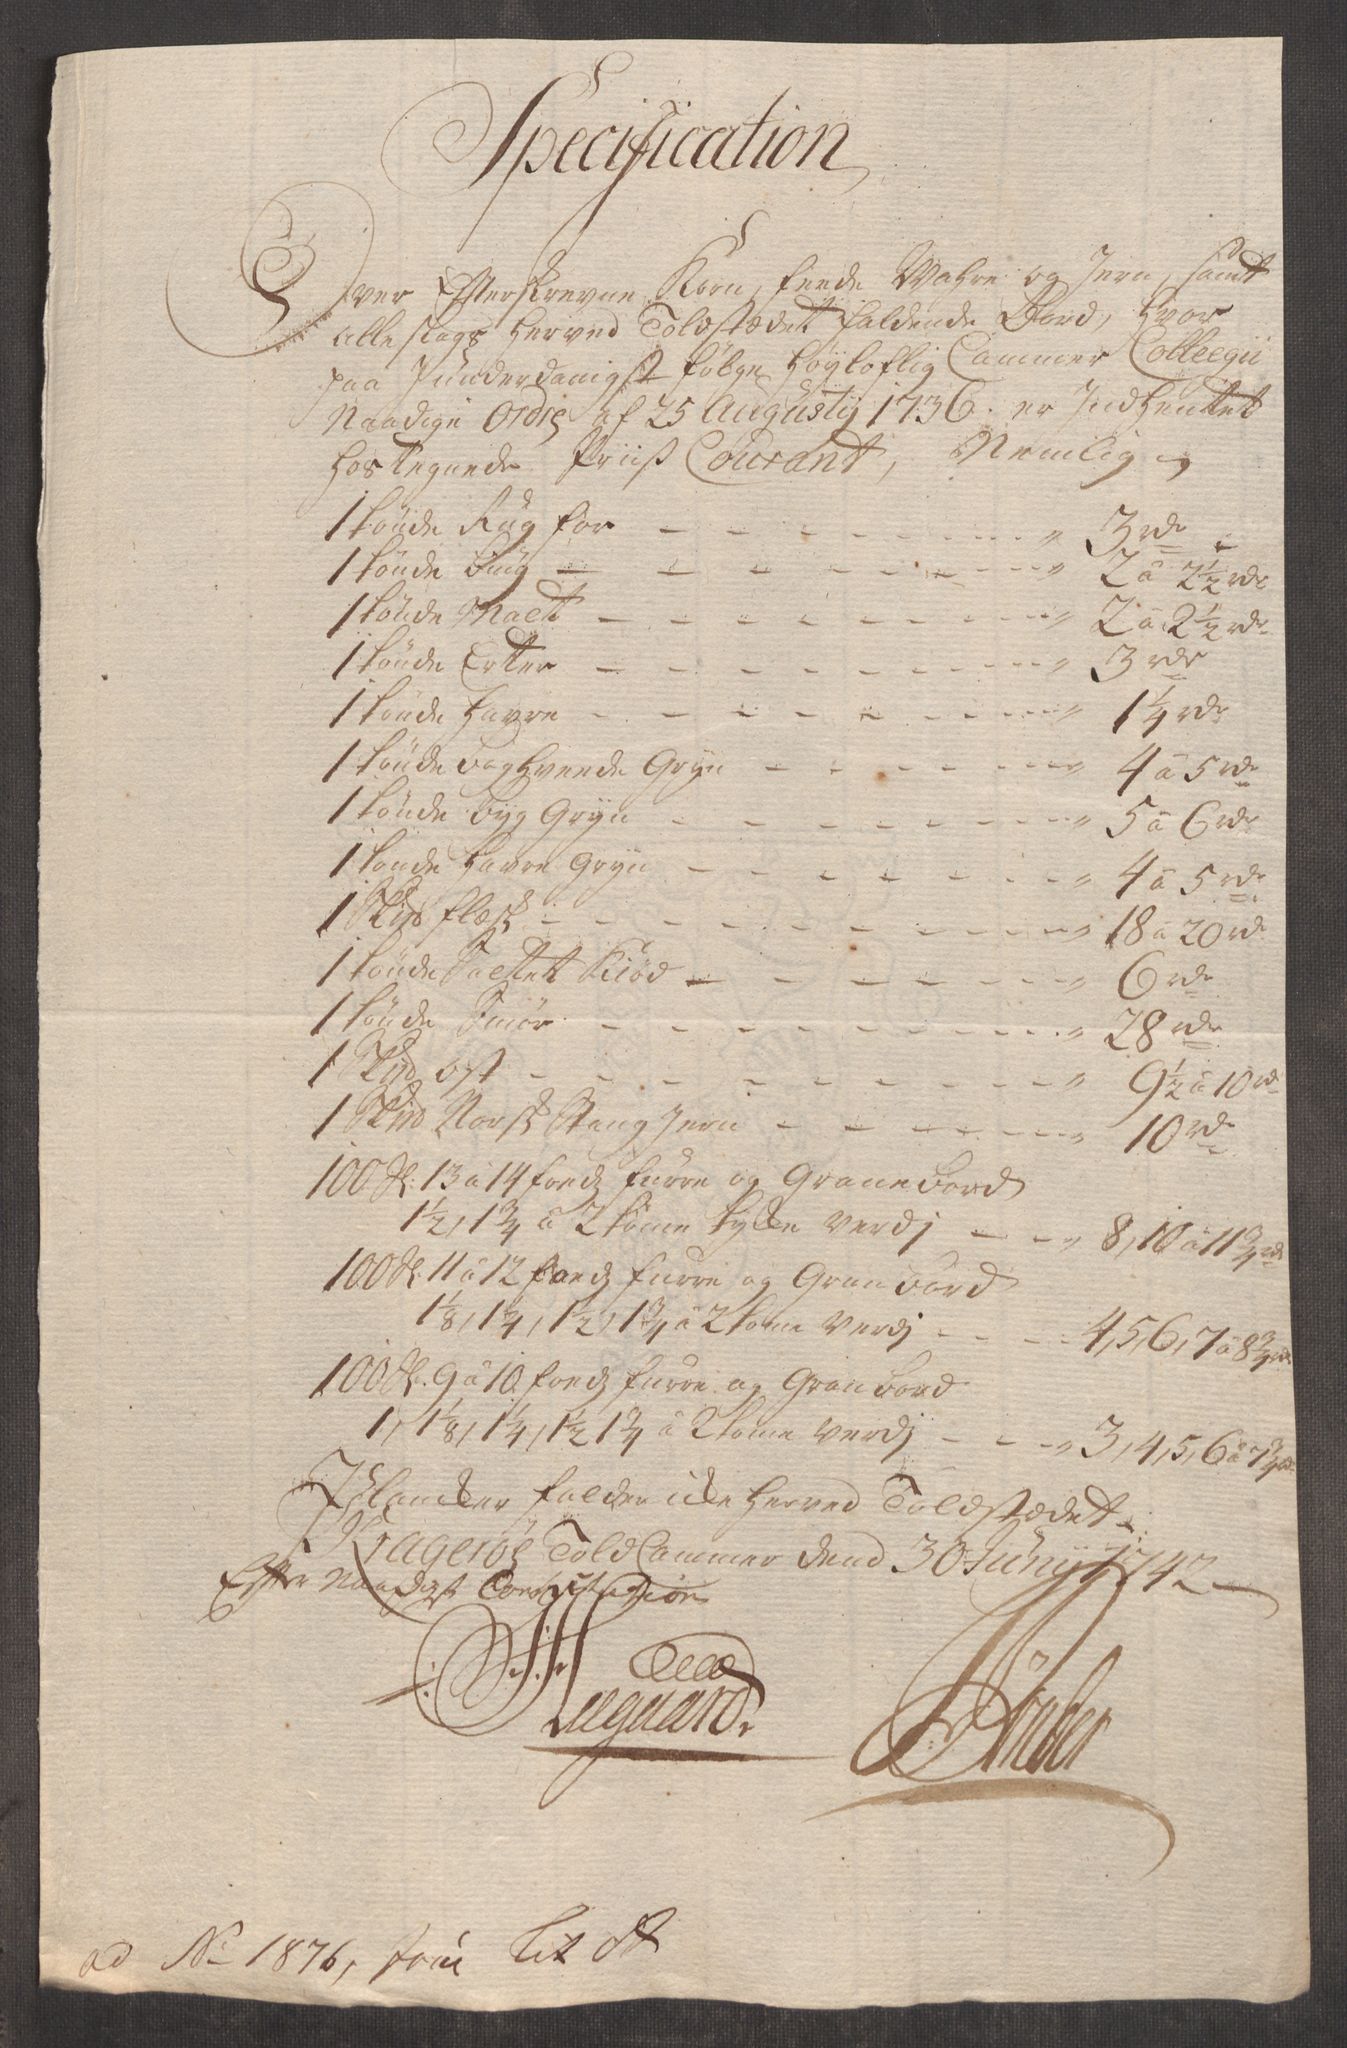 Specification
Over Efterskrevne Korn, feede Wahre og Jern, samt
alle slags herved Toldstædet faldende Bord, hvor
paa J underdanigst følge høyloflig Cammer Collegii
Naadige Ordre af 25 Augustij 1736. er Indhentet
hostegnede Priiß Courant, Nemlig
1 tönde Rug for - - - 3 rdr
1 tönde Biug - - - 2 â 2½ rdr
1 tönde Malt - - - 2 â 2½ rdr
1 tönde Erter - - - 3 rdr
1 tönde Havre - - - 1¼ rdr
1 tönde Boghveede Gryn - - - 4 â 5 rdr
1 tönde Byg Gryn - - - 5 â 6 rdr
1 tönde Havre Gryn - - - 4 â 5 rdr
1 Sk℔ flesk - - - 18 â 20 rdr
1 tönde Saltet Kiød - - - 6 rdr
1 tönde Smör - - - 28 rdr
1 Sk℔ ost - - - 9½ â 10 rdr
1 Sk℔ Norsk Stang Jern - - - 10 rdr
100 st. 13 â 14 foeds furre og Grane Bord
1½, 1¾ â 2 tome tyke verdj - - - 8, 10 â 11¾ rdr
100 st. 11 â 12 foeds furre og Gran Bord
1⅛, 1¼, 1½, 1¾ â 2 tome verdj - - - 4, 5, 6, 7 â 8¾ rdr
100 st. 9 â 10 foeds furre og Gran Bord
1, 1⅛, 1¼, 1½ 1¾ â 2 tome verdj - - - 3, 4, 5, 6 â 7¾ rdr
Plancker falder icke herved Toldstædet.
Kragerøe Told Cammer dend 30 Junij 1742
Efter Naadigst Constitution
ad No 1876, Litr